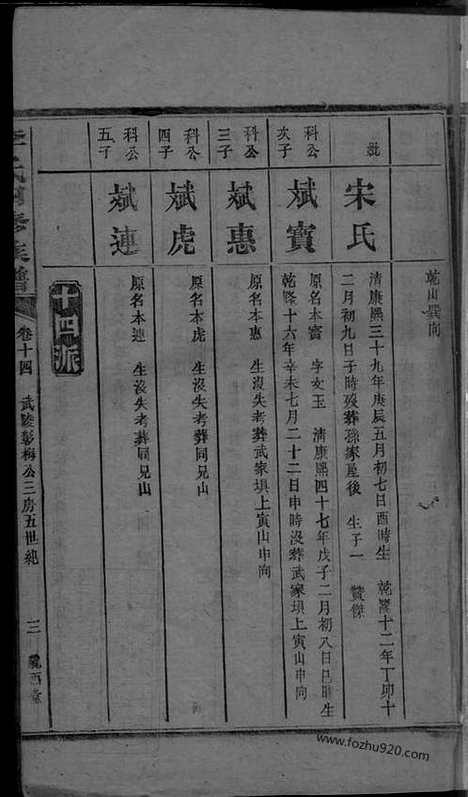 乾山巽向
妣
宋氏
清康熙三十九年庚辰五月初七日酉時生 乾隆十二年丁卯十
二月初九日子時歿葬孫家屋後 生子一 贊傑
科公
次子
斌寶
原名本寶 字女玉 清康熙四十七年戊子二月初八日巳時生
乾隆十六年辛未七月二十二日申時沒葬武家垻上寅山申向
科公
三子
斌惠
原名本惠 生沒失考葬武家垻上寅山申向
科公
四子
斌虎
原名本虎 生沒失考葬同兄山
科公
五子
斌連
原名本連 生沒失考葬同兄山
十四派
氏 修族譜
卷十四 武陵彭梅公三房五世紀
三
隴西堂
www.fozhu920.com